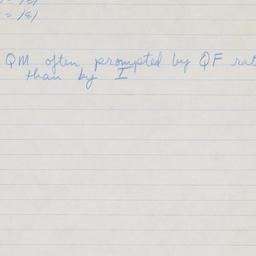 = 181
QM often prompted by QF rat
than by I